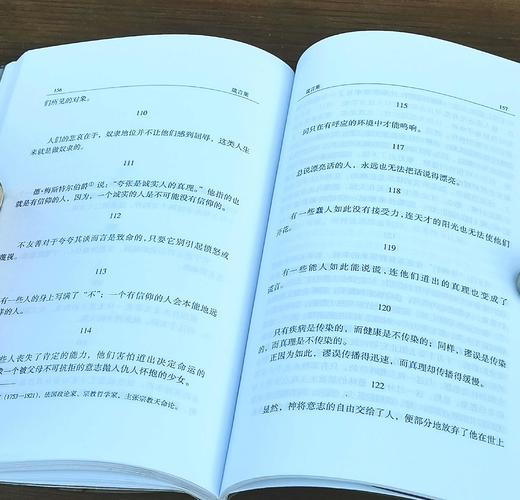 156 箴言集
们所见的对象。
110
人们的悲哀在于，奴隶地位并不让他们感到屈辱，这类人生
来就是做奴隶的。
111
德·梅斯特尔伯爵①说：“夸张是诚实人的真理。”他指的也
就是有信仰的人，因为，一个诚实的人是不可能没有信仰的。
112
不友善对于夸夸其谈而言是致命的，只要它别引起愤怒或
蔑视。
113
有一些人的身上写满了“不”；一个有信仰的人会本能地远
的人。
114
些人丧失了肯定的能力，他们害怕道出决定命运的
一个被父母不可抗拒的意志抛入仇人怀抱的少女。
(1753—1821)，法国政论家、宗教哲学家，主张宗教天命论。
箴言集 157
115
词只在有呼应的环境中才能鸣响。
117
总说漂亮话的人，永远也无法把话说得漂亮。
118
有一些蠢人如此没有接受力，连天才的阳光也无法使他们
开花。
119
有一些能人如此能说谎，连他们道出的真理也变成了
谎言。
120
只有疾病是传染的，而健康是不传染的；同样，谬误是传染
的，而真理是不传染的。
正因为如此，谬误传播得迅速，而真理却传播得缓慢。
122
显然，神将意志的自由交给了人，便部分地放弃了他在世上